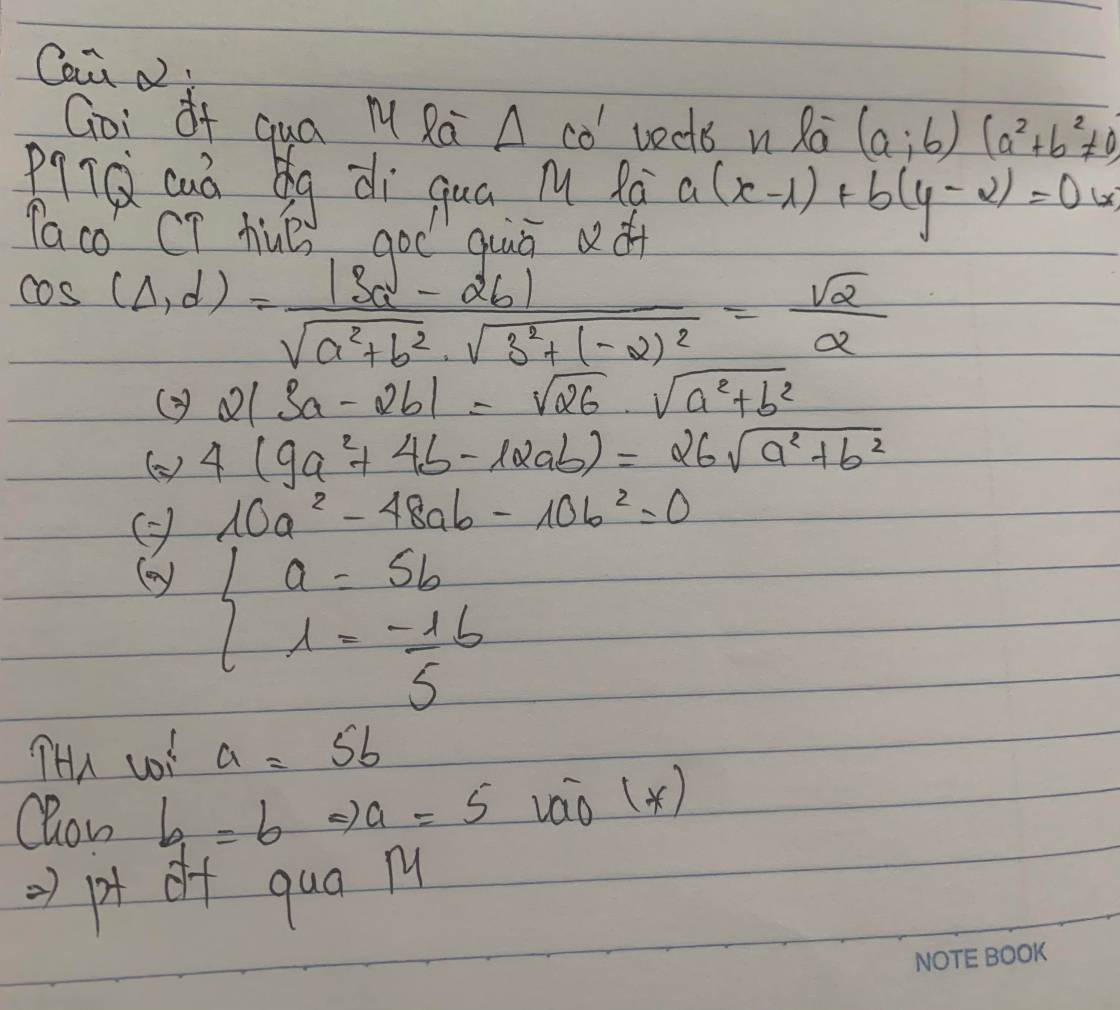 Câu 2:
Gọi đt qua M là Δ có vectơ n là (a;b) (a²+b²≠0)
PTTQ của đg đi qua M là a(x-1) + b(y-2) = 0 (*)
Ta có CT tính góc giữa 2 đt
cos (Δ,d) = |3a - 2b| / √a²+b² . √3²+(-2)² = √2 / 2
(=) 2|3a - 2b| = √26 . √a²+b²
(=) 4 (9a²+ 4b - 12ab) = 26√a²+b²
(=) 10a² - 48ab - 10b² = 0
(=) { a = 5b
1 = -1b / 5
TH1 với a = 5b
Chọn b = b => a = 5 vào (*)
=> pt đt qua M
NOTE BOOK